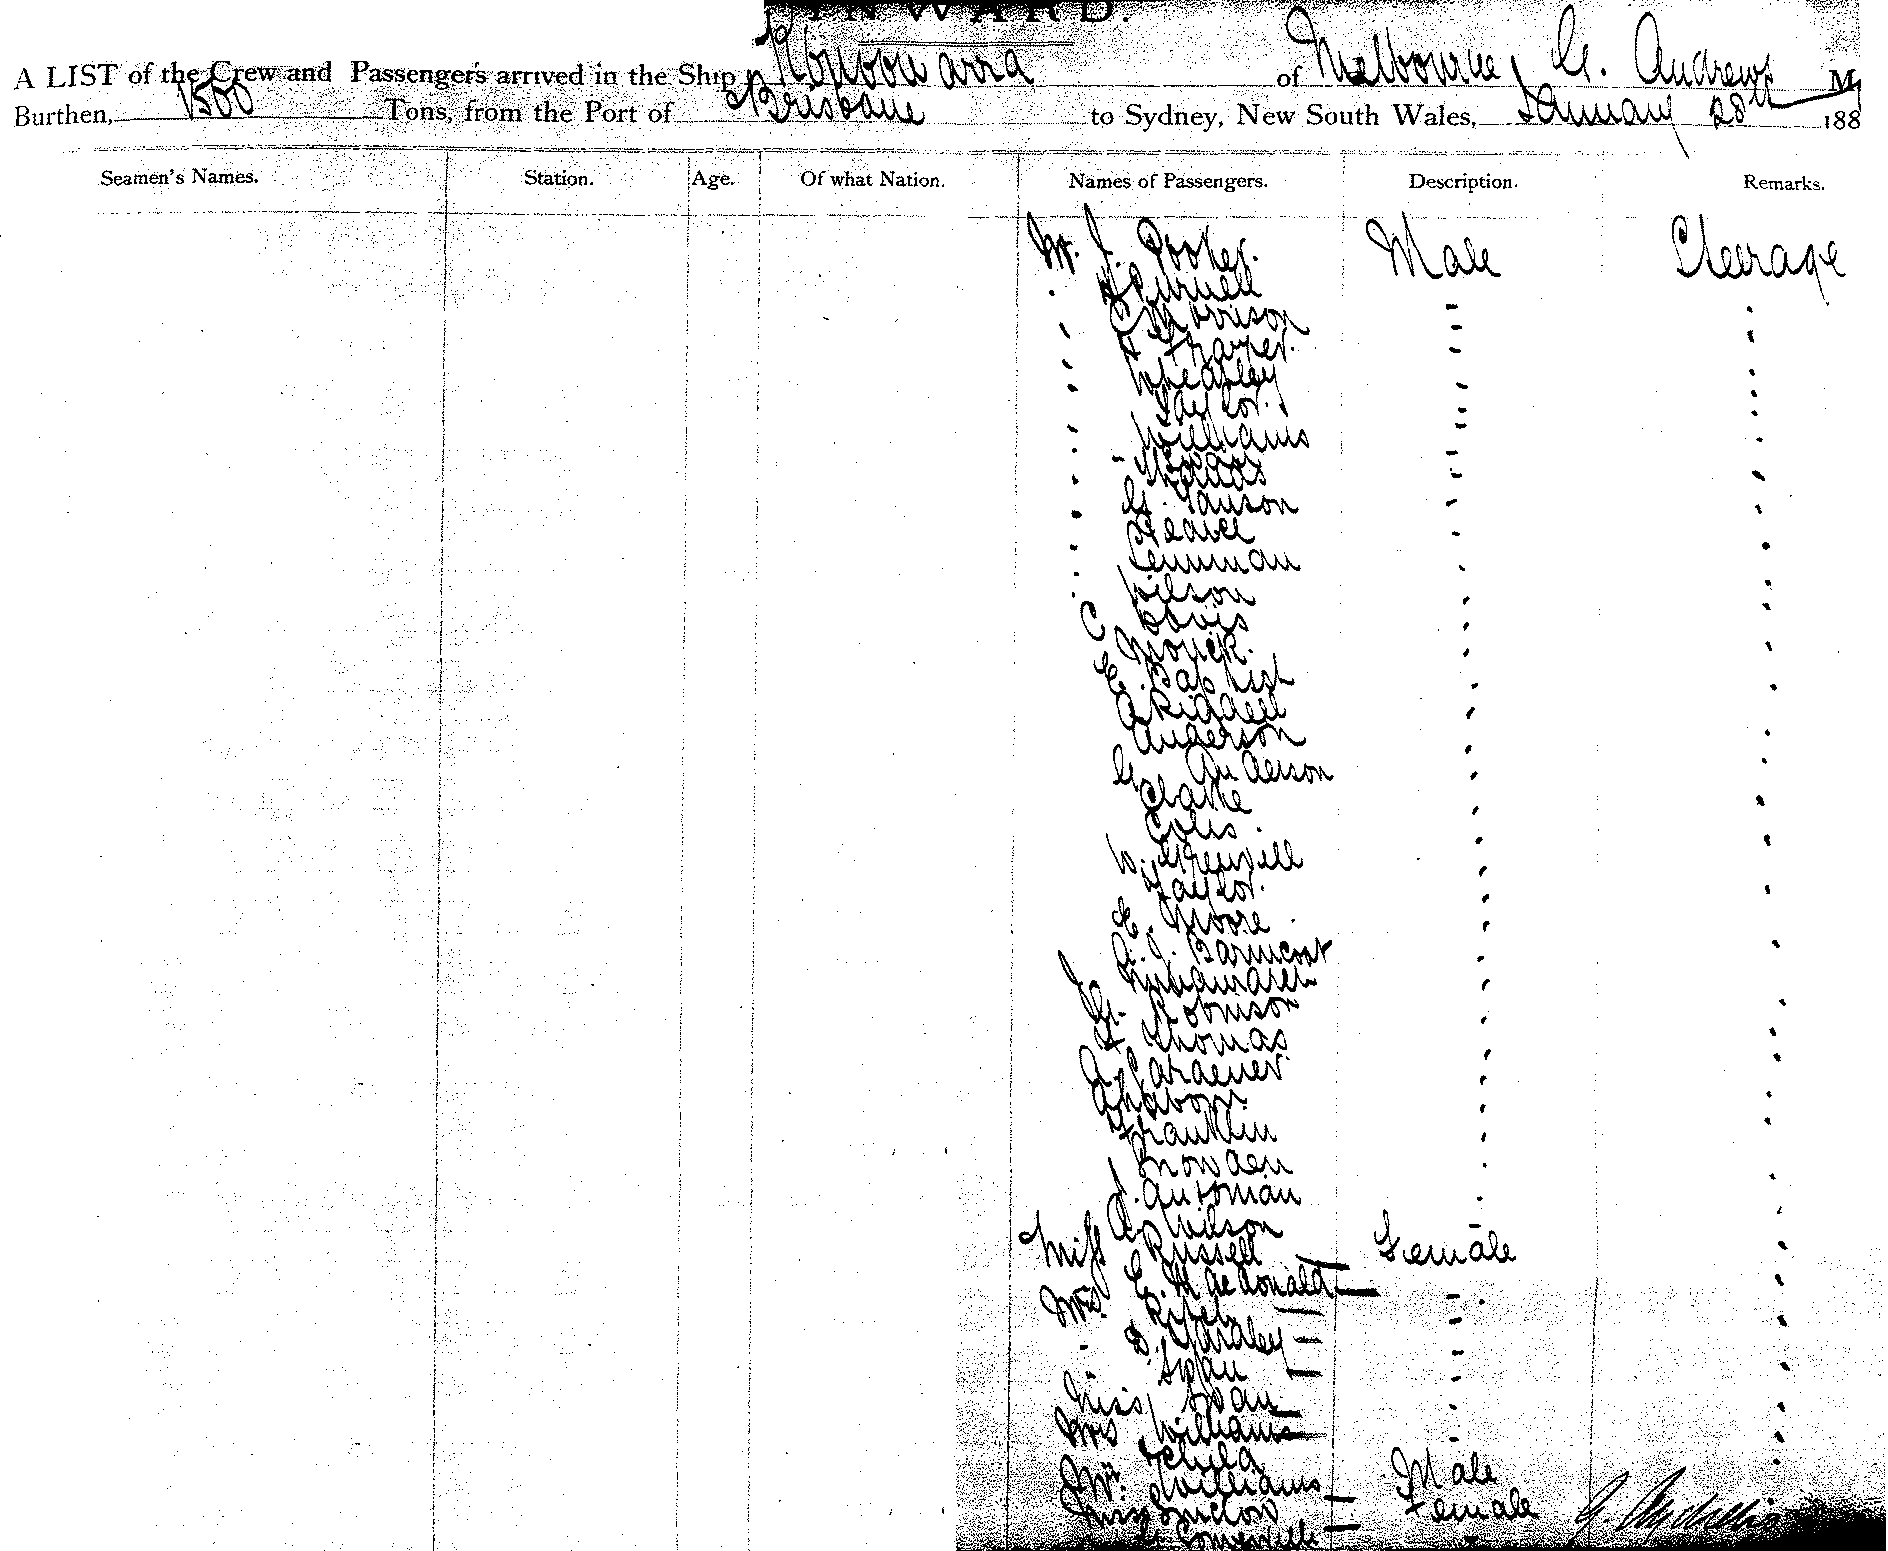 INWARD.
A LIST of the Crew and Passengers arrived in the Ship Konoowarra of Melbourne, G. Andrews
Burthen, 1500 Tons, from the Port of Brisbane to Sydney, New South Wales, January 28th 188
Seamen's Names. Station. Age. Of what Nation. Names of Passengers. Description. Remarks.
Mr. J. Pooley. Male Steerage
Purnell
C Morrison
Frazer.
Wheatley
Taylor.
Williams
G. Pauson
Pearce
Penniman
Wilson
C Davis
Monck.
E. Baptist
A Riddell
Anderson
G Anderson
Clarke
Coles.
W. Grenfell
Taylor.
E. Moore
A. J. Barnicoat
J
G. Robinson
F Thomas
A. Gardener
Franklin
Snowden
J.
A. Wilson
Miss Russell Female
E. MacDonald
Mrs.
D. Yardley
Span
Miss Span
Mrs Williams
+ child
Mr. Williams Male
Miss Female